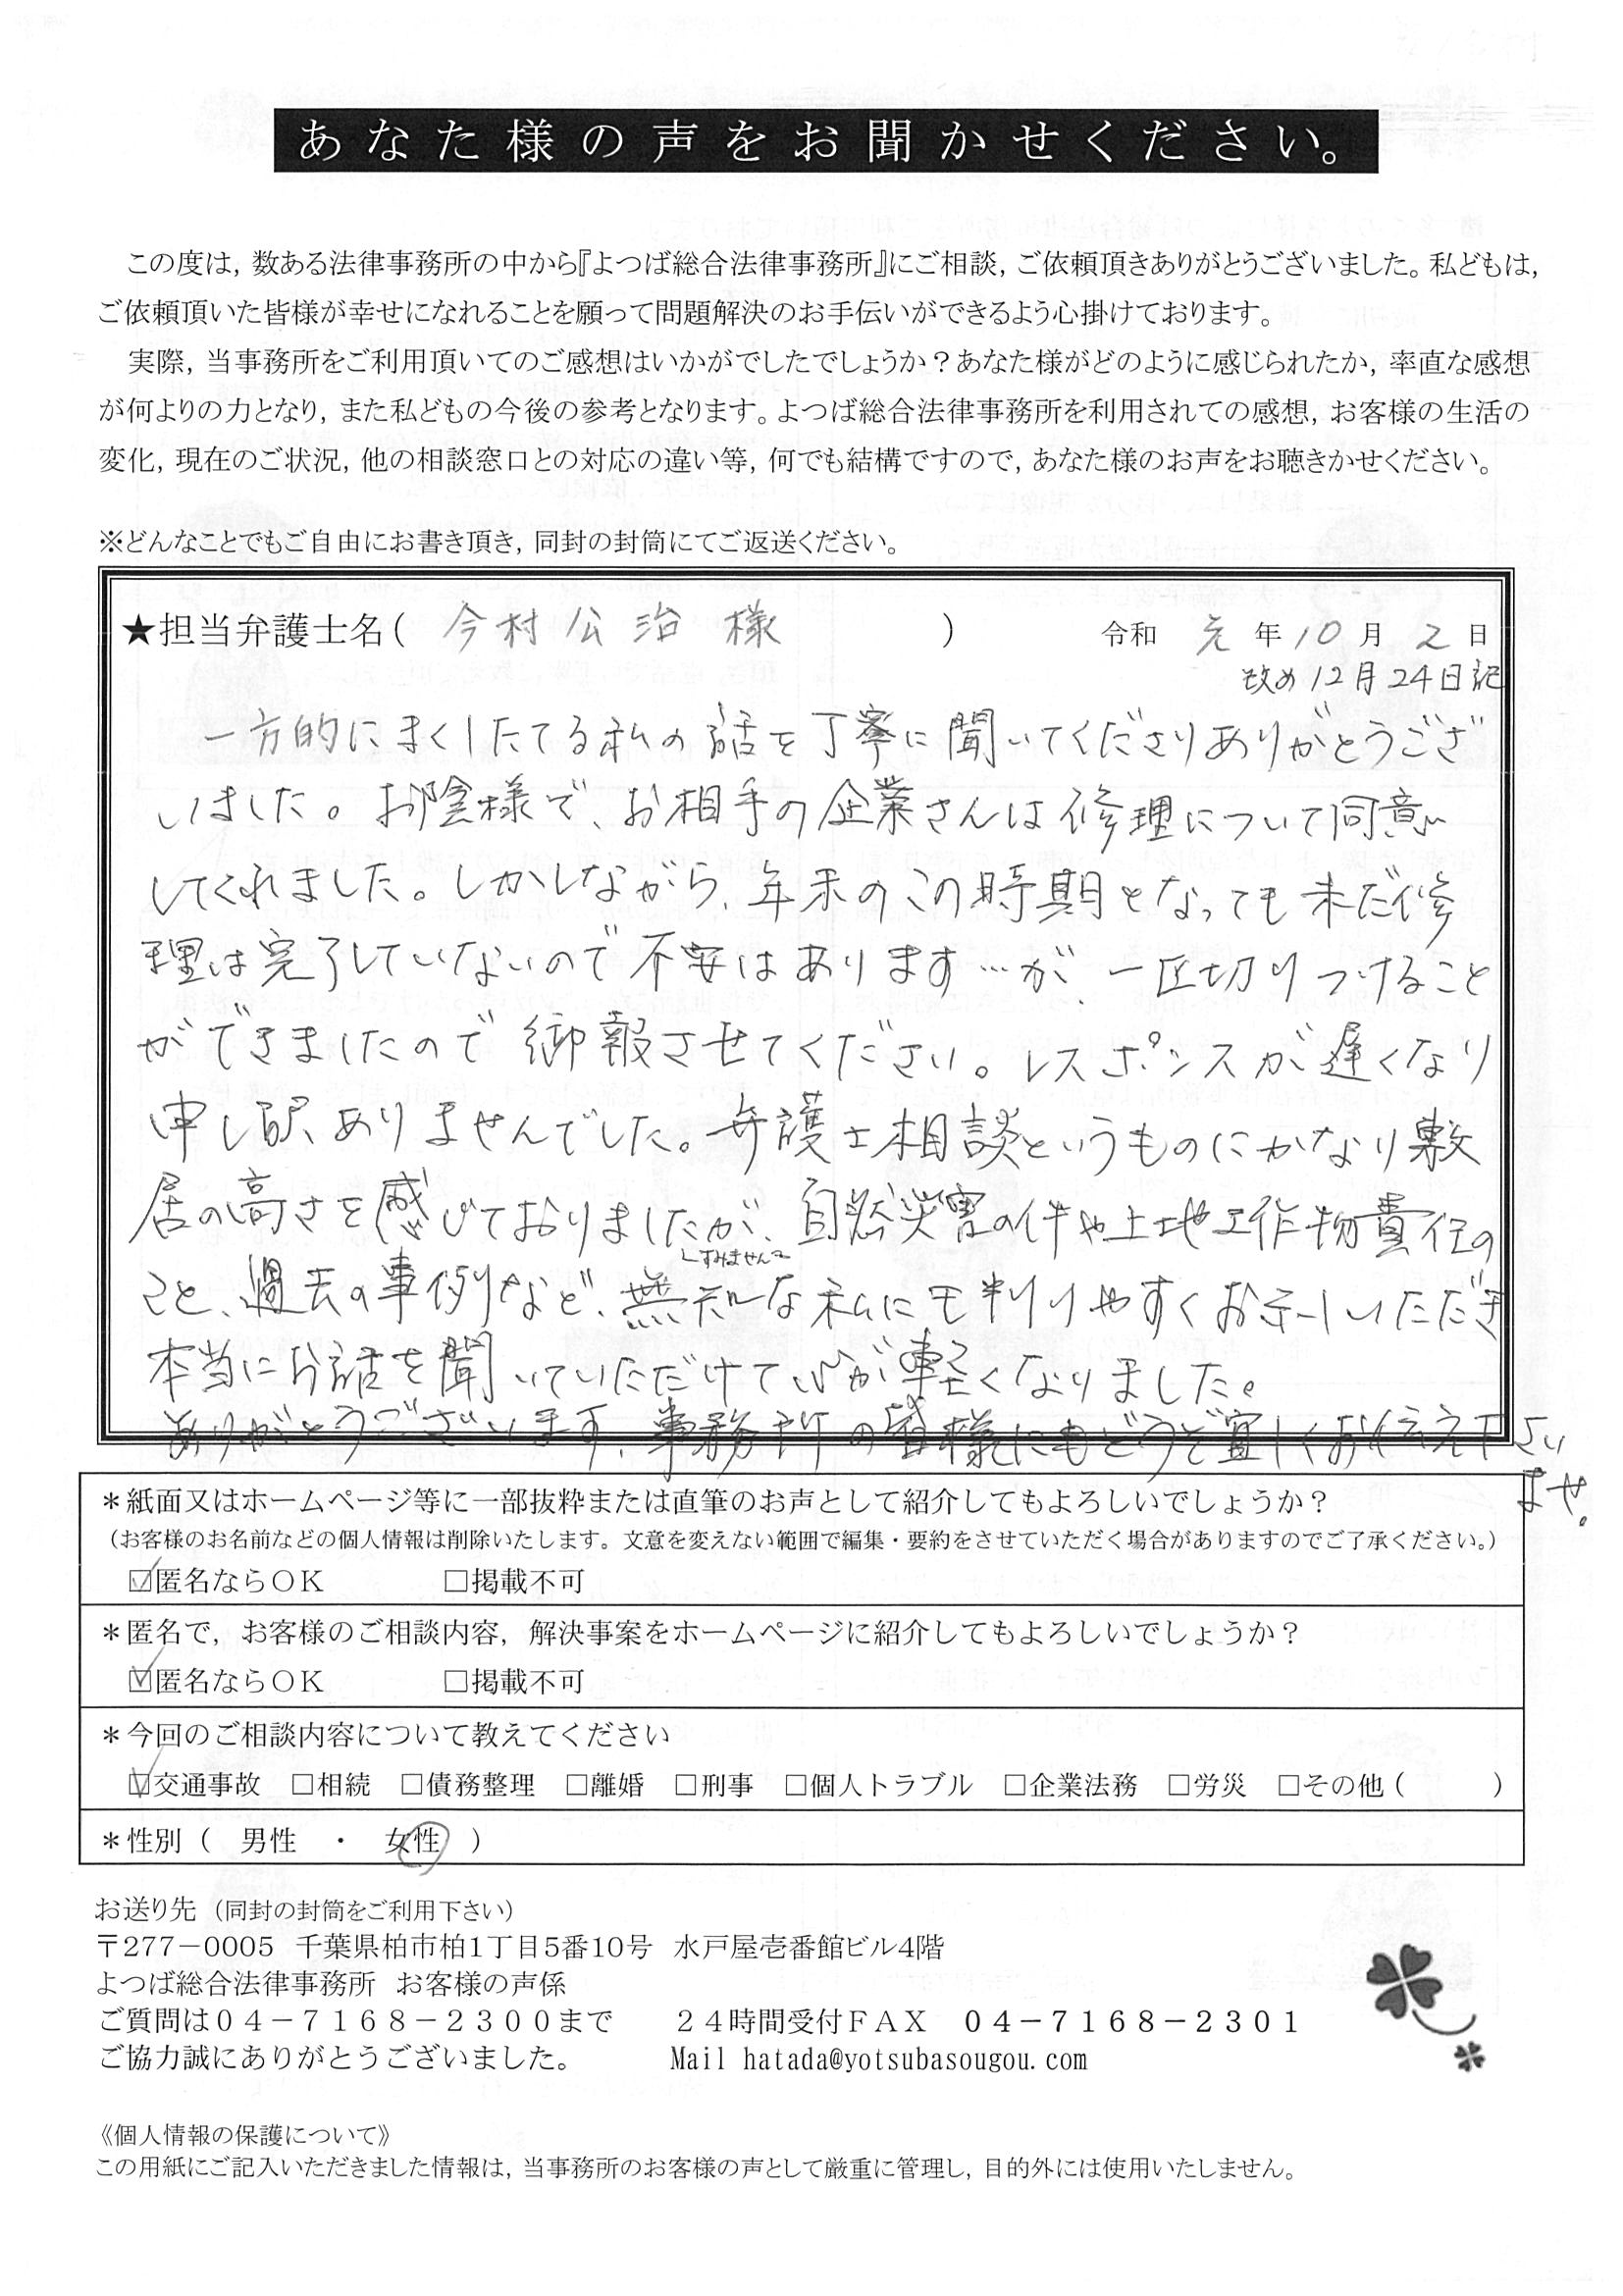 あなた様の声をお聞かせください。
この度は，数ある法律事務所の中から『よつば総合法律事務所』にご相談，ご依頼頂きありがとうございました。私どもは，
ご依頼頂いた皆様が幸せになれることを願って問題解決のお手伝いができるよう心掛けております。
実際，当事務所をご利用頂いてのご感想はいかがでしたでしょうか？あなた様がどのように感じられたか，率直な感想
が何よりの力となり，また私どもの今後の参考となります。よつば総合法律事務所を利用されての感想，お客様の生活の
変化，現在のご状況，他の相談窓口との対応の違い等，何でも結構ですので，あなた様のお声をお聴きかせください。
※どんなことでもご自由にお書き頂き，同封の封筒にてご返送ください。
★担当弁護士名（ 今村公治 様 ） 令和 元 年 10 月 2 日
改め12月24日記
一方的にまくしたてる私の話を丁寧に聞いてくださりありがとうござ
いました。お陰様で、お相手の企業さんは修理について同意
してくれました。しかしながら、年末のこの時期となっても未だ修
理は完了していないので不安はあります…が、一区切りつけること
ができましたので御報させてください。レスポンスが遅くなり
申し訳ありませんでした。弁護士相談というものにかなり敷
居の高さを感じておりましたが、自然災害の件や土地工作物責任の
すみません
こと、過去の事例など、無知な私にも判りやすくお示しいただき
本当にお話を聞いていただけて心が軽くなりました。
ありがとうございます。事務所の皆様にもどうぞ宜しくお伝え下さい
ませ。
＊紙面又はホームページ等に一部抜粋または直筆のお声として紹介してもよろしいでしょうか？
（お客様のお名前などの個人情報は削除いたします。文意を変えない範囲で編集・要約をさせていただく場合がありますのでご了承ください。）
☑匿名ならＯＫ □掲載不可
＊匿名で，お客様のご相談内容，解決事案をホームページに紹介してもよろしいでしょうか？
☑匿名ならＯＫ □掲載不可
＊今回のご相談内容について教えてください
☑交通事故 □相続 □債務整理 □離婚 □刑事 □個人トラブル □企業法務 □労災 □その他（ ）
＊性別（ 男性 ・ 女性 ）
お送り先（同封の封筒をご利用下さい）
〒277－0005 千葉県柏市柏1丁目5番10号 水戸屋壱番館ビル4階
よつば総合法律事務所 お客様の声係
ご質問は０４－７１６８－２３００まで ２４時間受付ＦＡＸ ０４－７１６８－２３０１
ご協力誠にありがとうございました。 Mail hatada@yotsubasougou.com
《個人情報の保護について》
この用紙にご記入いただきました情報は，当事務所のお客様の声として厳重に管理し，目的外には使用いたしません。